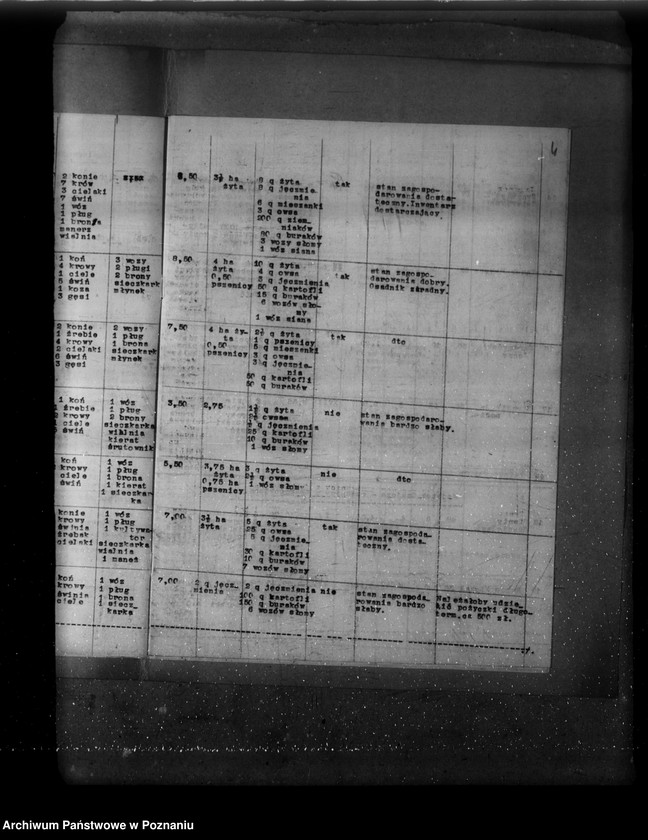 4
2 konie
7 krów
3 cielaki
7 świń
1 wóz
1 pług
1 brona
manerz
wialnia
8,50
3½ ha
żyta
8 q żyta
8 q jęczmie
nia
6 q mieszanki
3 q owsa
200 q ziem_
niaków
80 q buraków
3 wozy słomy
1 wóz siana
tak
stan zagospo-
darowania dosta-
teczny. Inwentarz
dostarczający.
1 koń
4 krowy
1 ciele
5 świń
1 koza
3 gęsi
3 wozy
2 pługi
2 brony
sieczkark
młynek
8,50
4 ha
żyta
0,50
pszenicy
10 q żyta
4 q owsa
8 q jęczmienia
50 q kartofli
15 q buraków
6 wozów sło_
my
1 wóz siana
tak
stan zagospo_
darowania dobry.
Osadnik zaradny.
2 konie
1 źrebie
4 krowy
2 cielaki
6 świń
3 gęsi
2 wozy
1 pług
1 brona
sieczkark
młynek
7,50
4 ha ży_
ta
0,50
pszenicy
2½ q żyta
1 q pszenicy
5 q mieszanki
3 q owsa
3 q jęczmie_
nia
50 q kartofli
50 q buraków
tak
dto
1 koń
1 źrebie
krowy
1 ciele
świń
1 wóz
1 pług
2 brony
sieczkarka
wialnia
kierat
śrutownik
3,50
2,75
1½ q żyta
2½ owsa
½ q jęczmienia
25 q kartofli
10 q buraków
1 wóz słomy
nie
stan zagospodaro_
wania bardzo słaby.
koń
krowy
ciele
świń
1 wóz
1 pług
1 brona
1 kierat
1 sieczkar
ka
5,50
3,75 ha
żyta
0,75 ha
pszenicy
3 q żyta
2½ q owsa
1 wóz słomy
nie
dto
konie
krowy
świnia
źrebak
cielaki
1 wóz
1 pług
1 kultywa
tor
sieczkarka
wialnia
1 maneż
7,00
3½ ha
żyta
5 q żyta
25 q owsa
5 q jęczmie_
nia
30 q kartofli
10 q buraków
7 wozów słomy
tak
stan zagospoda_
rowania dosta_
teczny.
koń
krowy
świnia
ciele
1 wóz
1 pług
1 brona
1 siecz_
karka
7,00
2 q jęcz_
mienia
2 q jęczmienia
100 q kartofli
150 q buraków
6 wozów słomy
nie
stan zagospoda_
rowania bardzo
słaby.
Należałoby udzie_
lić pożyczki długo_
term. ca 500 zł.
Archiwum Państwowe w Poznaniu